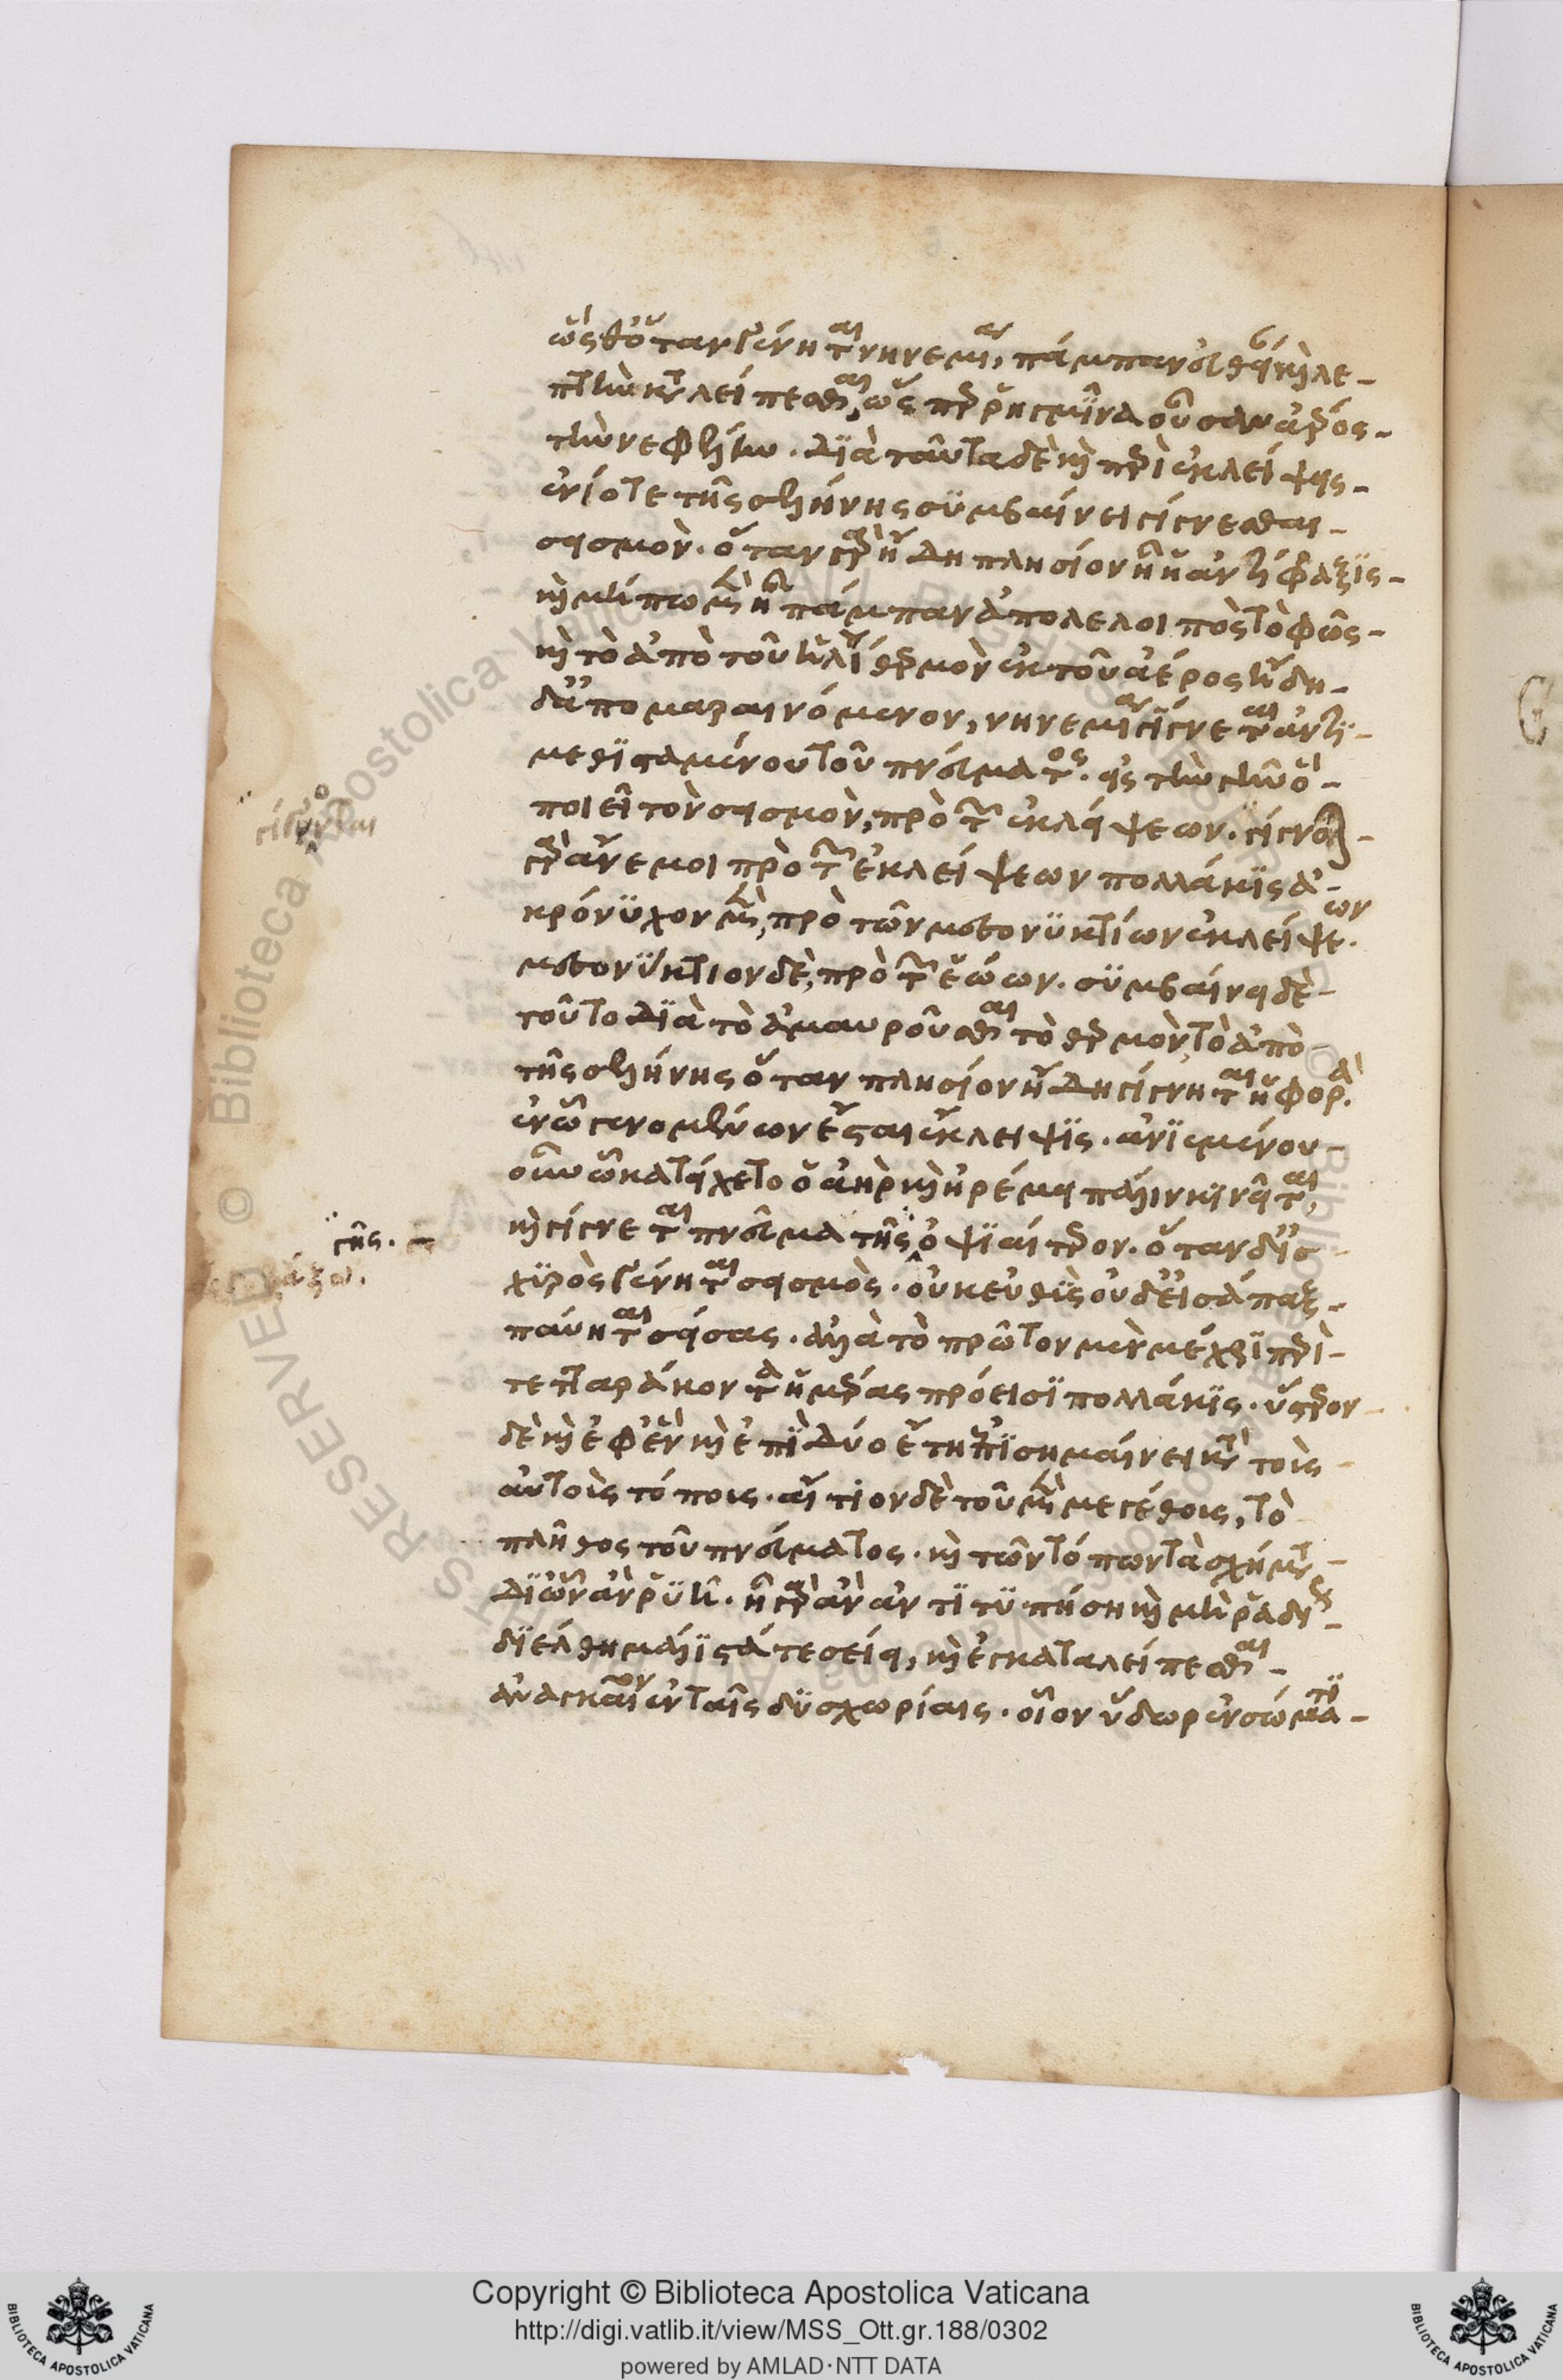 ὥσθ' ὅταν γένηται νηνεμία, πάμπαν εὐθεῖαν καὶ λε-
πτὴν καταλείπεσθαι, ὥσπερ ῥηγμῖνα οὖσαν ἀέρος-
τὴν νεφέλην. διὰ ταῦτα δὲ καὶ περὶ ἐκλείψεις-
ἐνίοτε τῆς σελήνης συμβαίνει γίγνεσθαι-
σεισμόν. ὅταν γὰρ ἤδη πλησίον ἦ ἡ ἀντίφραξις-
καὶ μήπω μὲν ἦ πάμπαν ἀπολελοιπὸς τὸ φῶς-
καὶ τὸ ἀπὸ τοῦ ἡλίου θερμὸν ἐκ τοῦ ἀέρος ἤδη-
δ' ἀπομαραινόμενον, νηνεμία γίγνεται ἀντι-
μεθισταμένου τοῦ πνεύματος εἰς τὴν γῆν ὃ-
ποιεῖ τὸν σεισμὸν, πρὸ τῶν ἐκλείψεων. γίγνονται-
γὰρ ἄνεμοι πρὸ τῶν ἐκλείψεων πολλάκις ἀ-
κρόνυχον μὲν, πρὸ τῶν μεσονυκτίων ἐκλείψεων.
μεσονύκτιον δὲ, πρὸ τῶν ἑώων. συμβαίνει δὲ-
τοῦτο διὰ τὸ ἀμαυροῦσθαι τὸ θερμὸν τὸ ἀπὸ-
τῆς σελήνης ὅταν πλησίον ἤδη γίγνηται ἡ φορά.
ἐν ᾧ γενομένων ἔσται ἔκλειψις. ἀνιεμένου-
οὖν ᾧ κατείχετο ὁ ἀὴρ καὶ ἠρέμει πάλιν κινεῖται,
καὶ γίγνεται πνεῦμα τῆς ὀψιαίτερον. ὅταν δ' ἰσ-
χυρὸς γένηται σεισμὸς. οὐκ εὐθὺς οὐδ' εἰσάπαξ-
παύηται σείσας. ἀλλὰ τὸ πρῶτον μὲν μέχρι περὶ-
τετταράκοντα ἡμέρας πρόεισι πολλάκις. ὕστερον-
δὲ καὶ ἐφ' ἓν καὶ ἐπὶ δύο ἔτη ἐπισημαίνει κατὰ τοὺς-
αὐτοὺς τόπους. αἴτιον δὲ τοῦ μὲν μεγέθους, τὸ
πλῆθος τοῦ πνεύματος. καὶ τῶν τόπων τὰ σχήματα-
δι' ὧν ἂν ῥυῇ. ἧ γὰρ ἂν ἀντιτυπήση καὶ μὴ ῥαδίως-
διέλθη μάλιστά τε σείει, καὶ ἐγκαταλείπεσθαι-
ἀναγκαῖον ἐν ταῖς δυσχωρίαις. οἷον ὕδωρ ἐν σώματι-
τῆς.